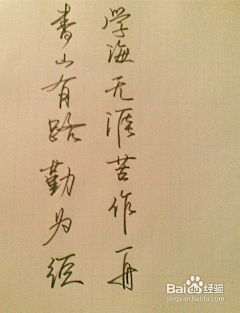 学海无涯苦作舟
書山有路勤为径
Bai du 经验
jingyan.baidu.com